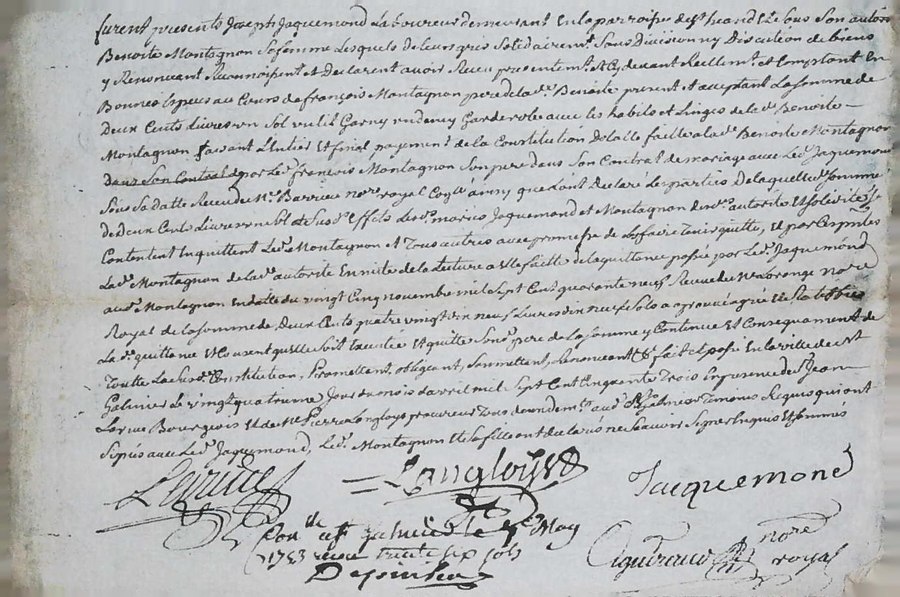 furent presents Joseph Jaquemond Laboureur demeurant En la parroisse de st heand Et de sous Son autorité
Benoite Montagnon Sa femme Lesquels de Leurs gris Solidairemt. Sans Division ny Discution de biens
y Renoncant Reconnoissent et Declarent avoir Receu presentemt. Et Cydevant Reellemt. et Comptant En
Bonnes Espèces au Cours de françois Montagnon pere de lad. Benoite present et acceptant La somme de
Deux Cents Livres un Sol un lit Garny Garderobe avec les habits et Linges de lad. Benoite
Montagnon faisant L'entier Et final payement de la Constitution De lad. faitte a lad. Benoite Montagnon
dans Son Contrat par Led. françois Montagnon Son pere dans Son Contrat de mariage avec Led. Jaquemond
Sous Sa datte Receu du Me. Barrieu nore. royal que dont declaré Les parties De laquelle Somme
de Deux Cents Livres un Sol et Effets Lesd. mariés Jaquemond et Montagnon de lad. autorité Et Solidité Se
Contentent En quittent Led. Montagnon et Tous autres avec promesse de Les faire Tenir quitte, et par Ces presentes
Lad. Montagnon de lad. autorité En suite de la Lecture a Elle faitte de la quittance passée par Led. Jaquemond
aud. Montagnon En datte du vingt Cinq novembre mil Sept Cent quarante neuf Receue de nore.
Royal de la somme de Deux Cents quatre vingt un neuf Livres dix neuf Sols a approuvé agréé
La d. quittance Et Consent qu'elle Soit Executée Et quitte Sond. pere de La Somme y Contenue Et Consequament de
Toutte La Susd. Constitution, Promettant, obligeant, Soumettant, Renonceant &c. fait et passé En la ville de st
Galmier Le vingt quatrieme Jour du mois d'avril mil Sept Cent Cinquante Trois En presence de Sr. Jean
Larue Bourgeois Et de Me. Pierre Langloys procureur Tous deux demts. aud. St. Galmier Temoins Requis qui ont
Signé avec Led. Jaquemond, Led. Montagnon Et Sa fille ont declaré ne Scavoir Signer Enquis Et Sommés
Langloys
Jacquemond
Con. lle a st galmier le May
1753 receu trente six sols
nore
royal